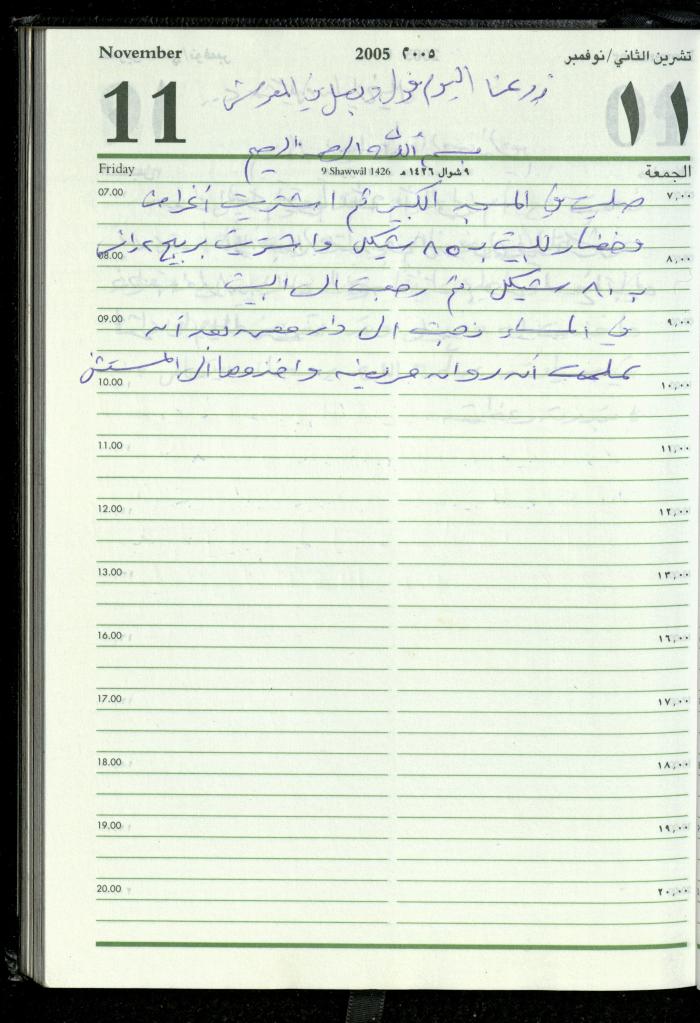 November 2005 ٢٠٠٥ تشرين الثاني/نوفمبر
11 ١١
زرعنا اليوم فول وبصل في
بسم الله الرحمن الرحيم
Friday 9 Shawwāl 1426 ٩ شوال ١٤٢٦ هـ الجمعة
07.00 ٧,٠٠
صليت في المسجد الكبير ثم اشتريت أغراض
وخضار للبيت ب ٨٥ شيكل واشتريت
08.00 ٨,٠٠
ب ٨٠ شيكل ثم رجعت الى البيت
09.00 ٩,٠٠
في المساء ذهبت الى دار بعد أن
علمت أن روان مريضة واخذوها الى المستشفى
10.00 ١٠,٠٠
11.00 ١١,٠٠
12.00 ١٢,٠٠
13.00 ١٣,٠٠
16.00 ١٦,٠٠
17.00 ١٧,٠٠
18.00 ١٨,٠٠
19.00 ١٩,٠٠
20.00 ٢٠,٠٠